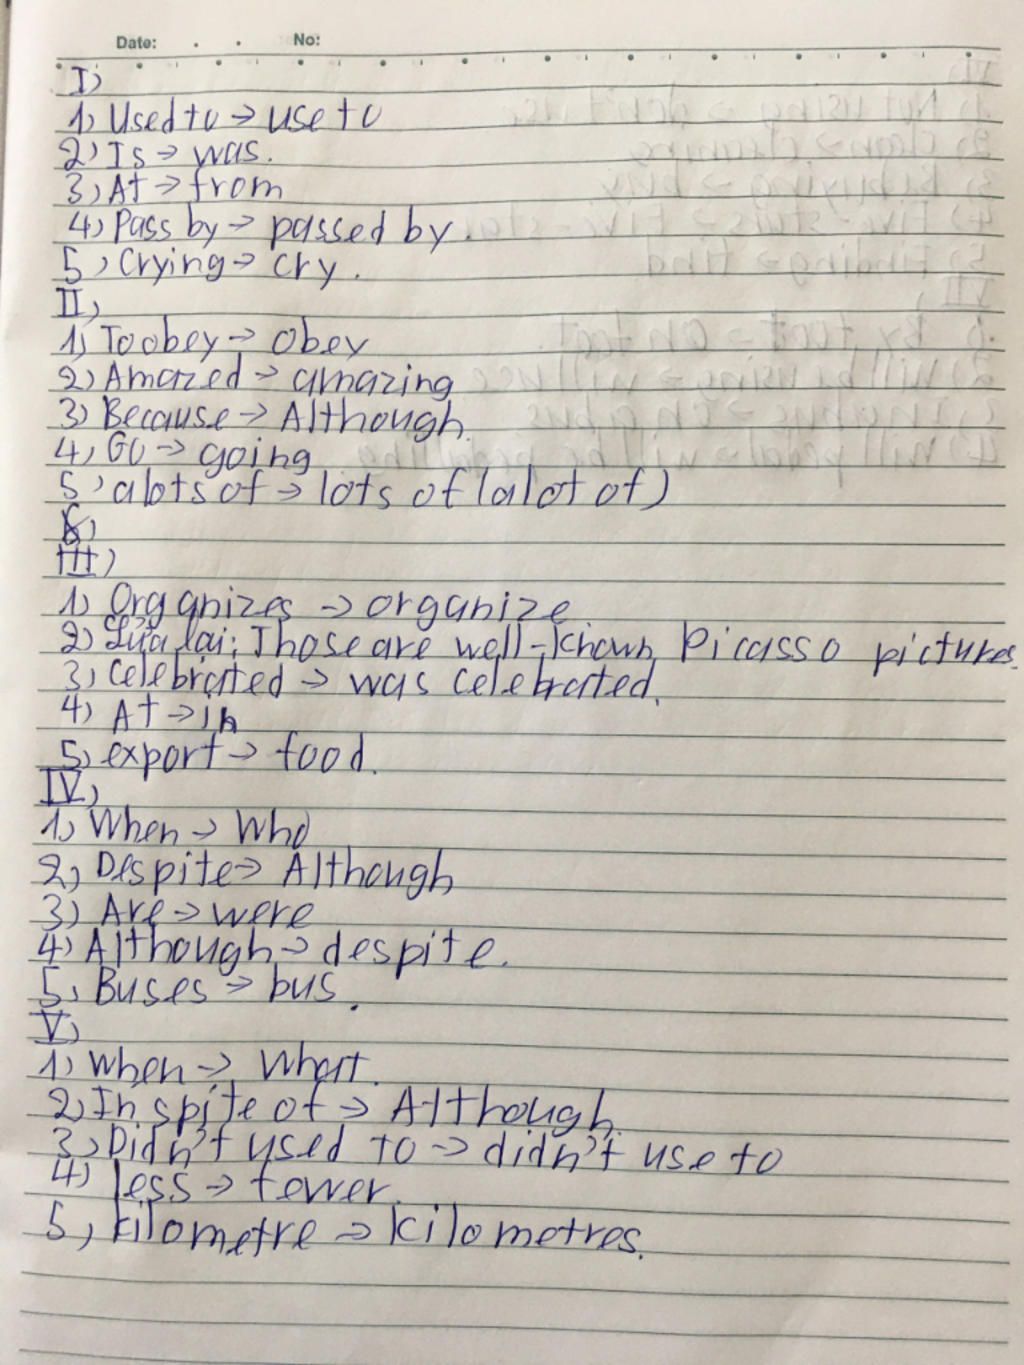 Date: . . No:
I)
1) Used to → use to
2) Is → was.
3) At → from
4) Pass by → passed by.
5) Crying → cry.
II)
1) To obey → obey
2) Amazed → amazing
3) Because → Although
4) Go → going
5) alots of → lots of (alot of)
6)
III)
1) Organizes → organize
2) Sửa lại: Those are well-known Picasso pictures.
3) Celebrated → was celebrated.
4) At → in
5) export → food.
IV)
1) When → Who
2) Despite → Although
3) Are → were
4) Although → despite.
5) Buses → bus.
V)
1) When → What.
2) In spite of → Although.
3) Didn't used to → didn't use to
4) less → fewer.
5) kilometre → kilometres.